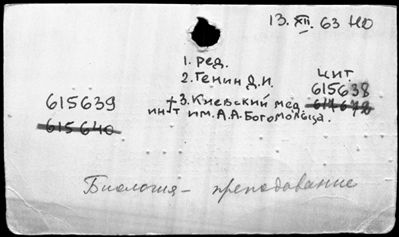 13. XII. 63 НО
1. Ред.
2. Генин Д.И.
цит.
615638
+3. Киевский мед. 617672
615639
615640
инст им. А.А. Богомольца.
Биология – преподование